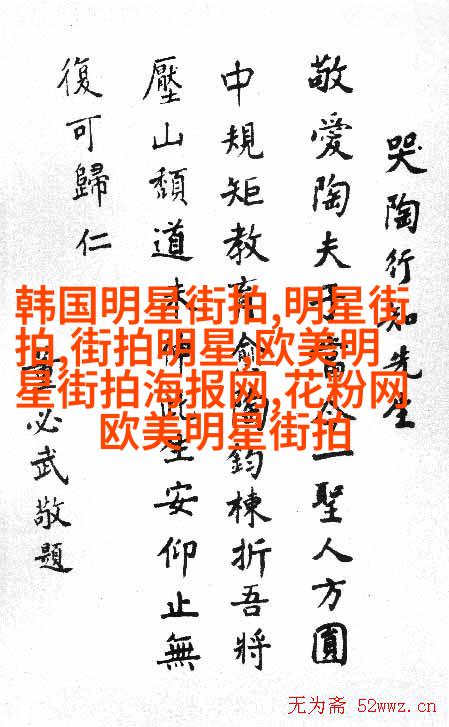 哭陶行知先生
敬愛陶夫子當今一聖人方圓
中規矩教育愈陶鈞棟折吾將
壓山頹道未伸此生安仰止無
復可歸仁
董必武敬題
韩国明星街拍,明星街
拍,街拍明星,欧美明
星街拍海报网,花粉网
欧美明星街拍
无为斋 52wwz.cn